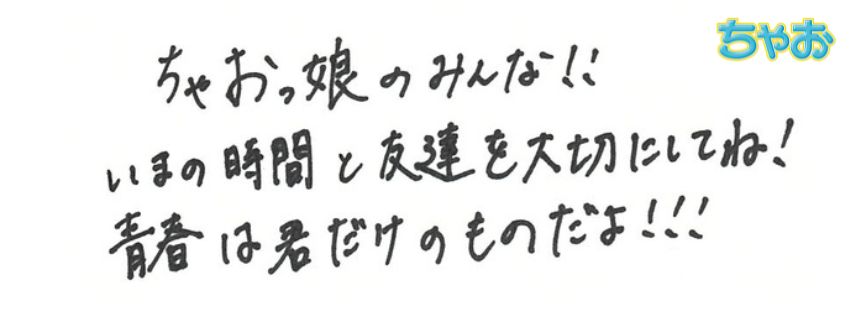 ちゃお
ちゃおっ娘のみんな!!
いまの時間と友達を大切にしてね!
青春は君だけのものだよ!!!